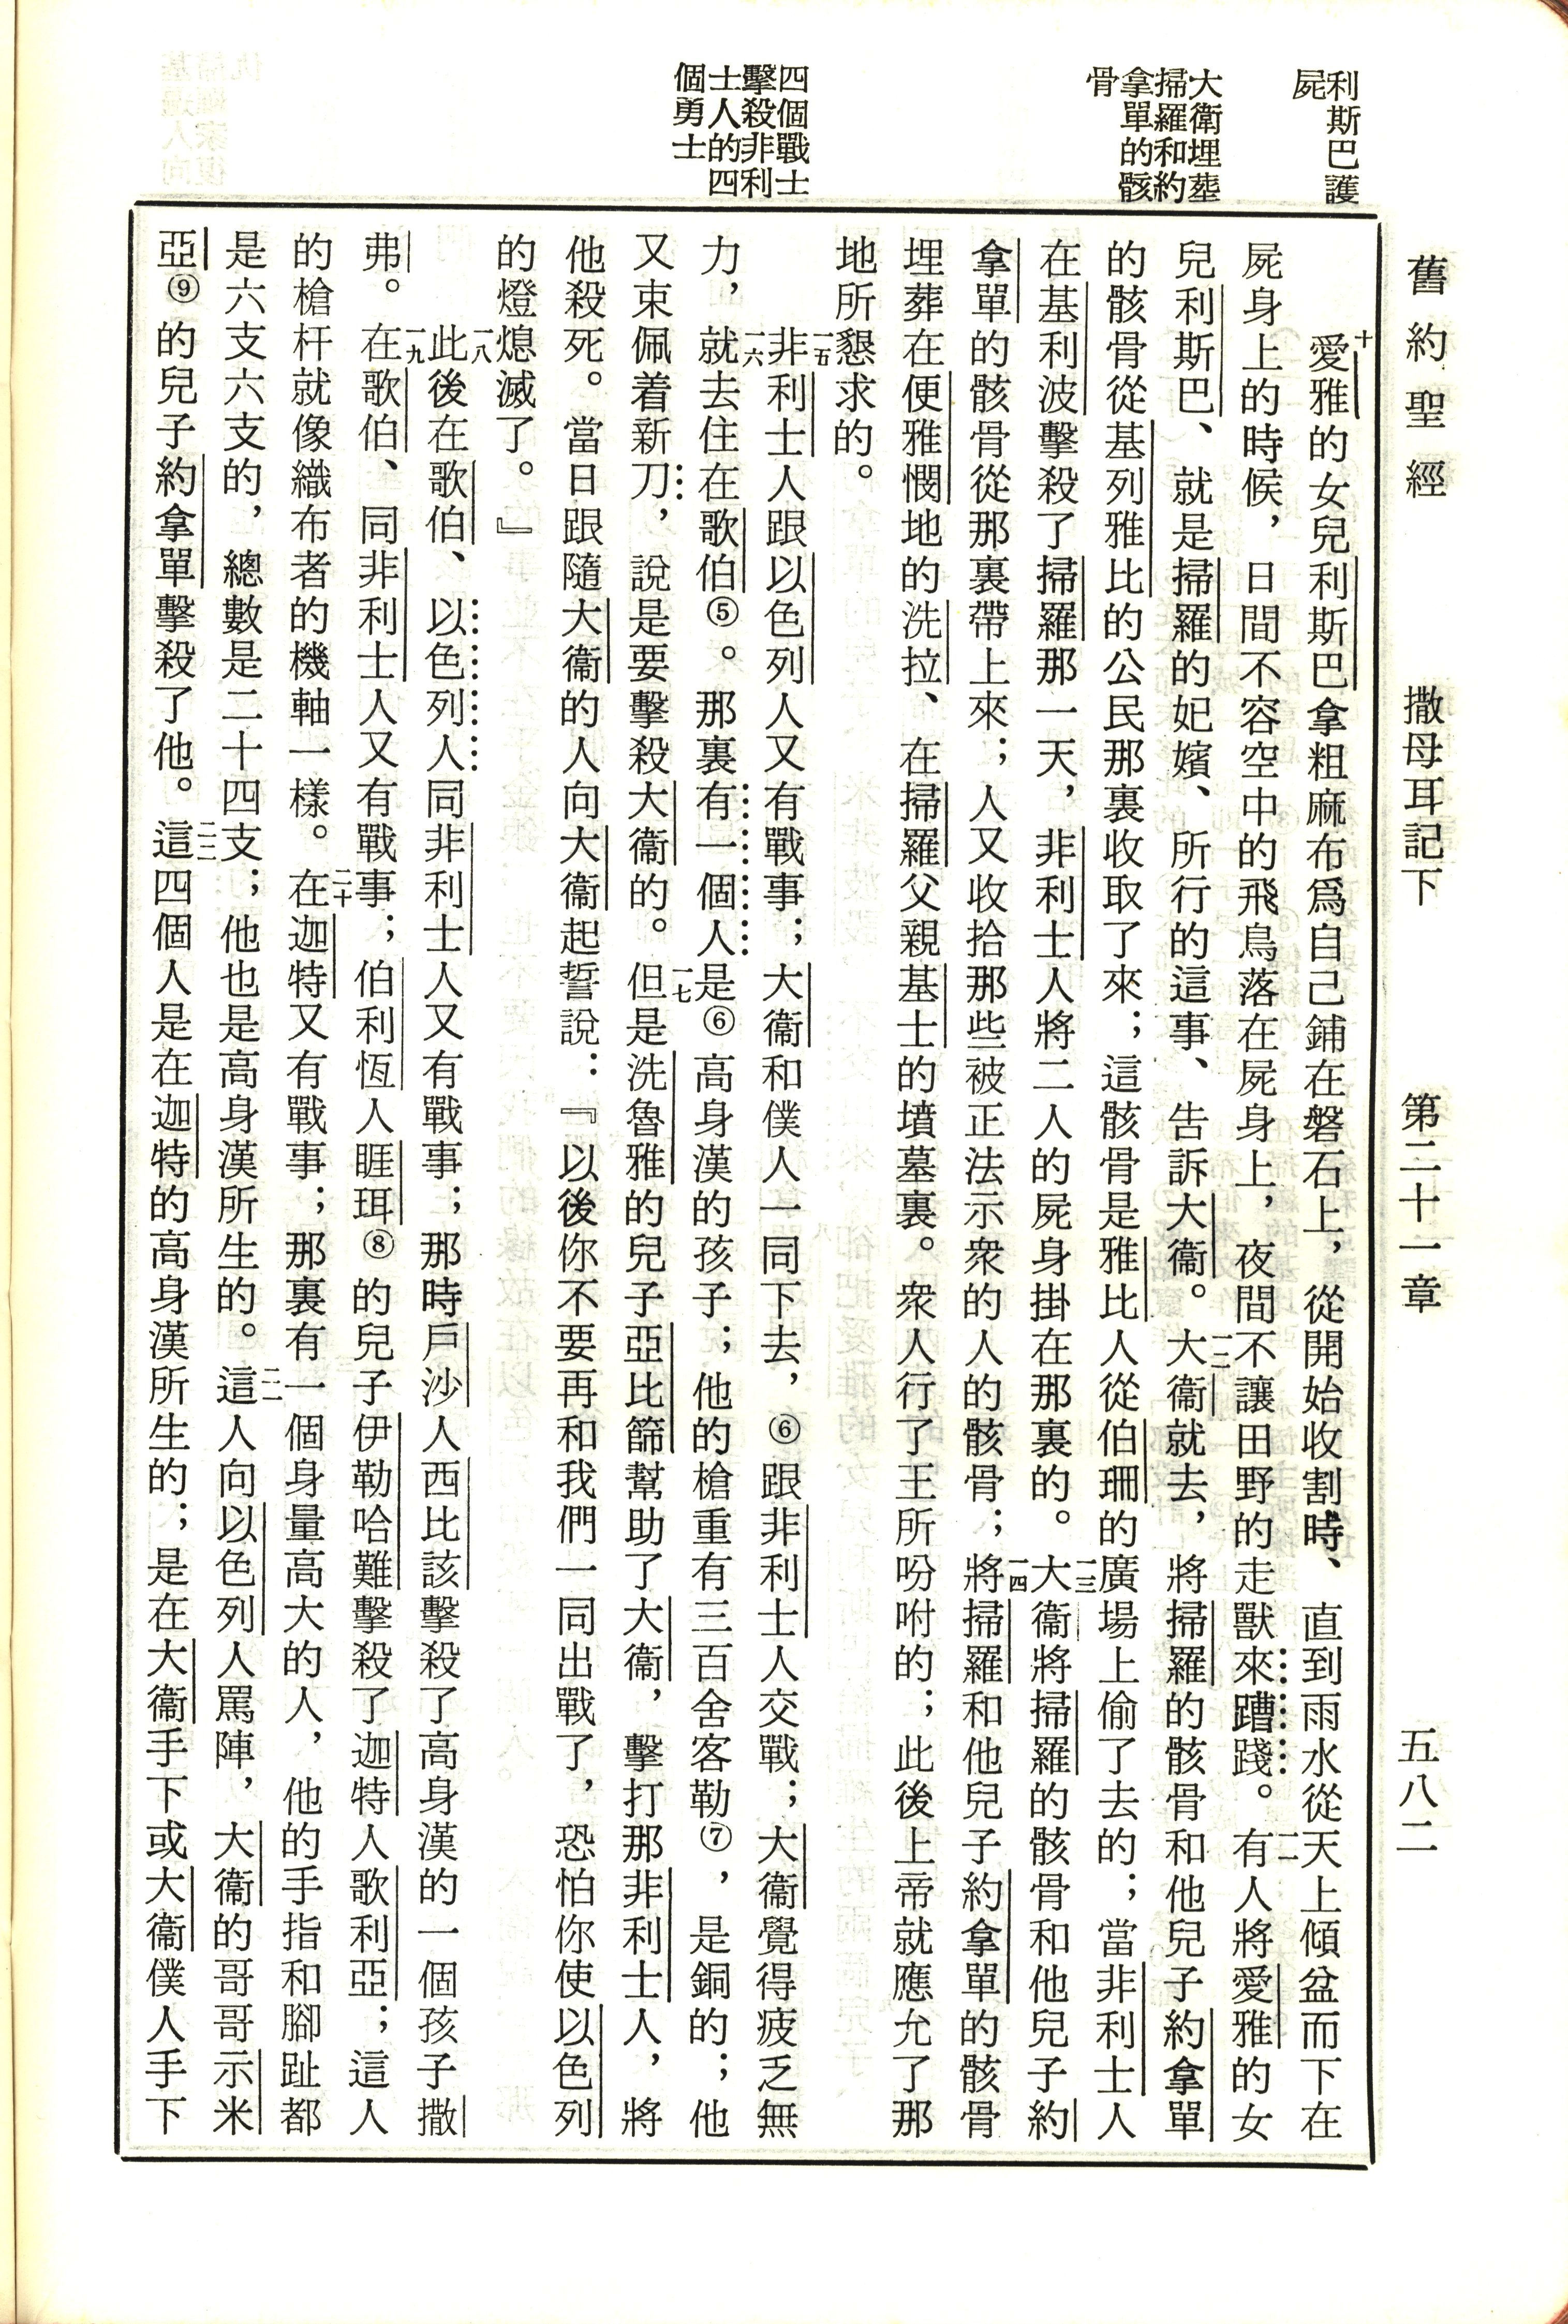 舊約聖經 撒母耳記下 第二十一章 五八二
利斯巴護
屍
大衛埋葬
掃羅和約
拿單的骸
骨
四個戰士
擊殺非利
士人的四
個勇士
十愛雅的女兒利斯巴拿粗麻布爲自己鋪在磐石上，從開始收割時、直到雨水從天上傾盆而下在
屍身上的時候，日間不容空中的飛鳥落在屍身上，夜間不讓田野的走獸來蹧踐。一一有人將愛雅的女
兒利斯巴、就是掃羅的妃嬪、所行的這事、告訴大衞。一二大衞就去，將掃羅的骸骨和他兒子約拿單
的骸骨從基列雅比的公民那裏收取了來；這骸骨是雅比人從伯珊的廣場上偷了去的；當非利士人
在基利波擊殺了掃羅那一天，非利士人將二人的屍身掛在那裏的。一三大衞將掃羅的骸骨和他兒子約
拿單的骸骨從那裏帶上來；人又收拾那些被正法示衆的人的骸骨；一四將掃羅和他兒子約拿單的骸骨
埋葬在便雅憫地的洗拉、在掃羅父親基士的墳墓裏。衆人行了王所吩咐的；此後上帝就應允了那
地所懇求的。
一五非利士人跟以色列人又有戰事；大衞和僕人一同下去，⑥跟非利士人交戰；大衞覺得疲乏無
力，一六就去住在歌伯⑤。那裏有一個人是⑥高身漢的孩子；他的槍重有三百舍客勒⑦，是銅的；他
又束佩着新刀，說是要擊殺大衞的。一七但是洗魯雅的兒子亞比篩幫助了大衞，擊打那非利士人，將
他殺死。當日跟隨大衞的人向大衞起誓說：『以後你不要再和我們一同出戰了，恐怕你使以色列
的燈熄滅了。』
一八此後在歌伯、以色列人同非利士人又有戰事；那時戶沙人西比該擊殺了高身漢的一個孩子撒
弗。一九在歌伯、同非利士人又有戰事；伯利恆人睚珥⑧的兒子伊勒哈難擊殺了迦特人歌利亞；這人
的槍杆就像織布者的機軸一樣。二十在迦特又有戰事；那裏有一個身量高大的人，他的手指和腳趾都
是六支六支的，總數是二十四支；他也是高身漢所生的。二一這人向以色列人罵陣，大衞的哥哥示米
亞⑨的兒子約拿單擊殺了他。二二這四個人是在迦特的高身漢所生的；是在大衞手下或大衞僕人手下